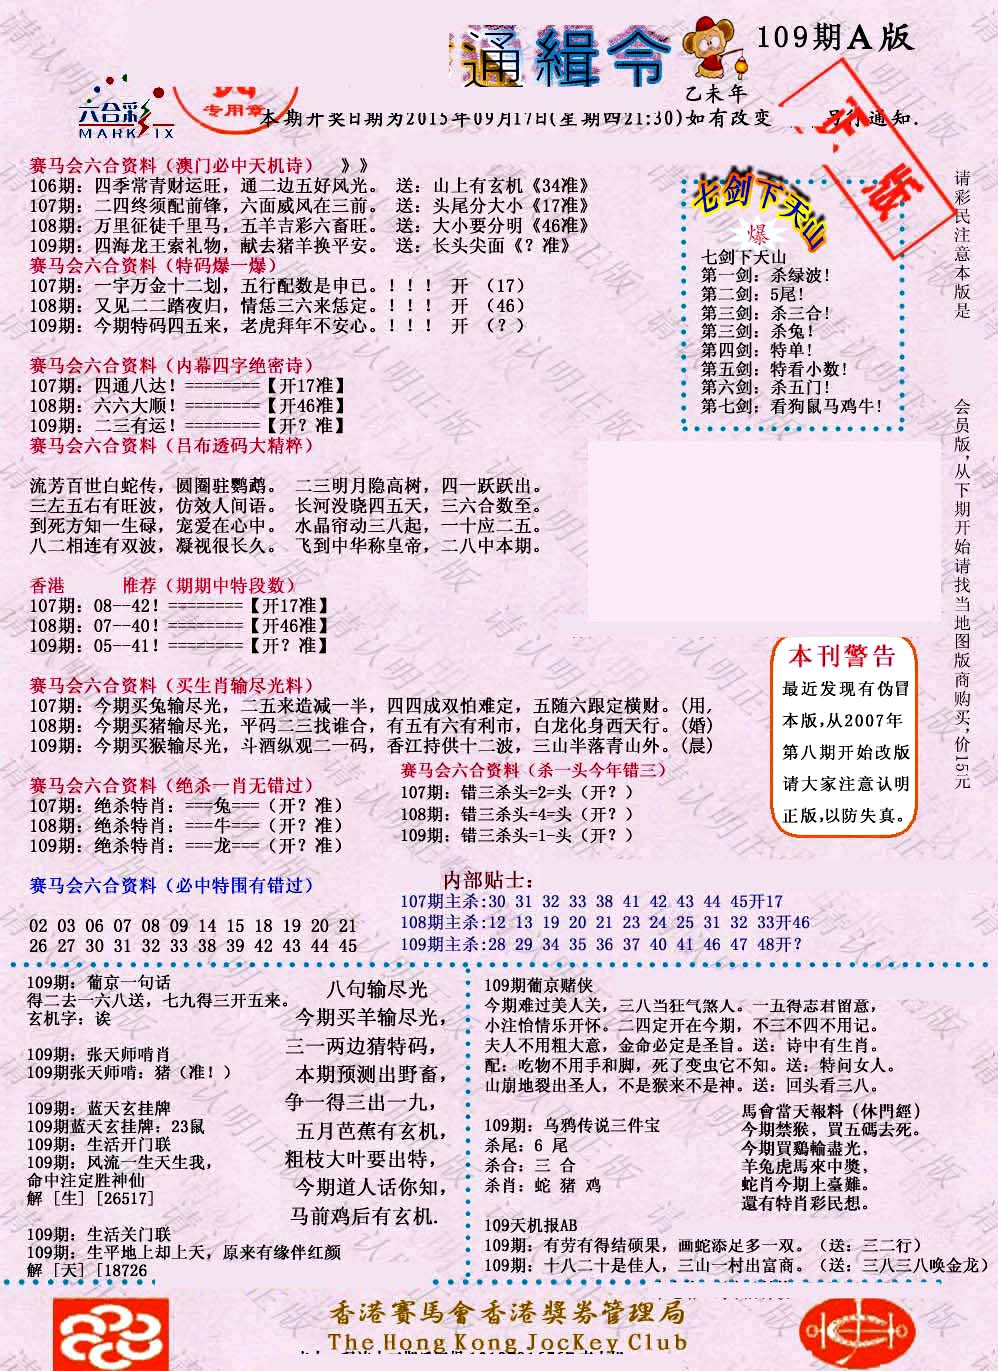 通緝令
109期A版
乙未年
六合彩
MARK SIX
专用章
本期开奖日期为2015年09月17日(星期四21:30)如有改变 另行通知.
赛马会六合资料（澳门必中天机诗） 》》
106期：四季常青财运旺，通二边五好风光。 送：山上有玄机《34准》
107期：二四终须配前锋，六面威风在三前。 送：头尾分大小《17准》
108期：万里征徒千里马，五羊吉彩六畜旺。 送：大小要分明《46准》
109期：四海龙王索礼物，献去猪羊换平安。 送：长头尖面《？准》
赛马会六合资料（特码爆一爆）
107期：一字万金十二划，五行配数是申已。！！！ 开 （17）
108期：又见二二踏夜归，情恁三六来恁定。！！！ 开 （46）
109期：今期特码四五来，老虎拜年不安心。！！！ 开 （？）
赛马会六合资料（内幕四字绝密诗）
107期：四通八达！========【开17准】
108期：六六大顺！========【开46准】
109期：二三有运！========【开？准】
赛马会六合资料（吕布透码大精粹）
流芳百世白蛇传，圆圈驻鹦鹉。 二三明月隐高树，四一跃跃出。
三左五右有旺波，仿效人间语。 长河没晓四五天，三六合数至。
到死方知一生碌，宠爱在心中。 水晶帘动三八起，一十应二五。
八二相连有双波，凝视很长久。 飞到中华称皇帝，二八中本期。
七剑下天山
爆
七剑下天山
第一剑：杀绿波!
第二剑：5尾!
第三剑：杀三合!
第三剑：杀兔!
第四剑：特单!
第五剑：特看小数!
第六剑：杀五门!
第七剑：看狗鼠马鸡牛!
请彩民注意本版是
会员版,从下期开始请找当地图版商购买,价15元
香港 推荐（期期中特段数）
107期：08--42！========【开17准】
108期：07--40！========【开46准】
109期：05--41！========【开？准】
赛马会六合资料（买生肖输尽光料）
107期：今期买兔输尽光，二五来造减一半，四四成双怕难定，五随六跟定横财。(用,
108期：今期买猪输尽光，平码二三找谁合，有五有六有利市，白龙化身西天行。(婚)
109期：今期买猴输尽光，斗酒纵观二一码，香江持供十二波，三山半落青山外。(晨)
本刊警告
最近发现有伪冒
本版,从2007年
第八期开始改版
请大家注意认明
正版,以防失真。
赛马会六合资料（绝杀一肖无错过）
107期：绝杀特肖：===兔===（开？准）
108期：绝杀特肖：===牛===（开？准）
109期：绝杀特肖：===龙===（开？准）
赛马会六合资料（杀一头今年错三）
107期：错三杀头=2=头（开？）
108期：错三杀头=4=头（开？）
109期：错三杀头=1-头（开？）
赛马会六合资料（必中特围有错过）
02 03 06 07 08 09 14 15 18 19 20 21
26 27 30 31 32 33 38 39 42 43 44 45
内部贴士：
107期主杀:30 31 32 33 38 41 42 43 44 45开17
108期主杀:12 13 19 20 21 23 24 25 31 32 33开46
109期主杀:28 29 34 35 36 37 40 41 46 47 48开？
109期：葡京一句话
得二去一六八送，七九得三开五来。
玄机字：诶
109期：张天师啃肖
109期张天师啃：猪（准！）
109期：蓝天玄挂牌
109期蓝天玄挂牌：23鼠
109期：生活开门联
109期：风流一生天生我，
命中注定胜神仙
解 [生] [26517]
109期：生活关门联
109期：生平地上却上天，原来有缘伴红颜
解 [天] [18726
八句输尽光
今期买羊输尽光，
三一两边猜特码，
本期预测出野畜，
争一得三出一九，
五月芭蕉有玄机，
粗枝大叶要出特，
今期道人话你知，
马前鸡后有玄机.
109期葡京赌侠
今期难过美人关，三八当狂气煞人。一五得志君留意，
小注怡情乐开怀。二四定开在今期，不三不四不用记。
夫人不用粗大意，金命必定是圣旨。送：诗中有生肖。
配：吃物不用手和脚，死了变虫它不知。送：特问女人。
山崩地裂出圣人，不是猴来不是神。送：回头看三八。
109期：乌鸦传说三件宝
杀尾：6 尾
杀合：三 合
杀肖：蛇 猪 鸡
馬會當天報料（休門經）
今期禁猴，買五碼去死。
今期買鷄輸盡光，
羊兔虎馬來中獎，
蛇肖今期上臺難。
還有特肖彩民想。
109天机报AB
109期：有劳有得结硕果，画蛇添足多一双。（送：三二行）
109期：十八二十是佳人，三山一村出富商。（送：三八三八唤金龙）
香港賽馬會香港獎券管理局
The Hong Kong JocKey Club